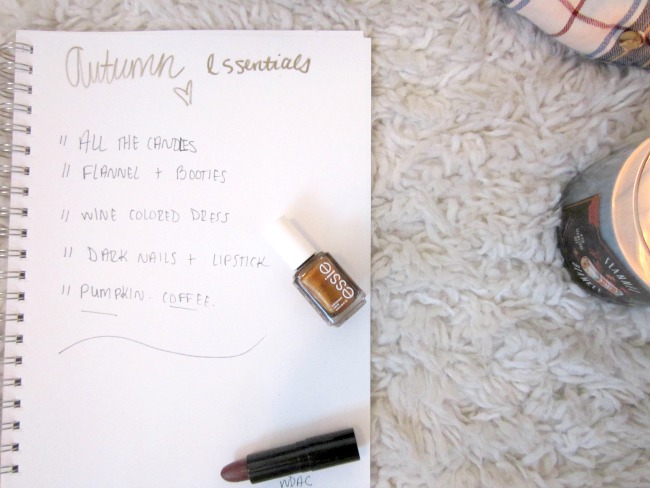 Autumn essentials
// ALL THE CANDLES
// FLANNEL + BOOTIES
// WINE COLORED DRESS
// DARK NAILS + LIPSTICK
// PUMPKIN. COFFEE.
essie
WDAC
FLANNEL